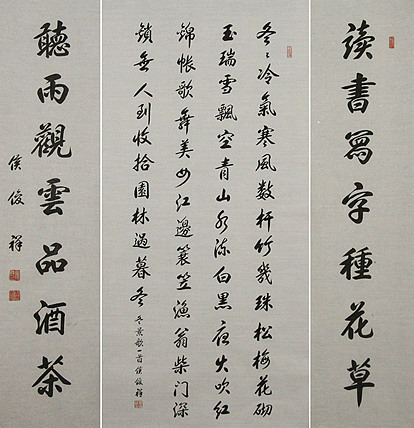 读書寫字種花草
冬冬冷氣寒風数杆竹幾珠松梅花砌
玉瑞雪飄空青山水冻白黑夜火吹红
錦帳歌舞美女江邊蓑笠漁翁柴门深
鎖無人到收拾園林過暮冬
冬景歌一首侯俊祥
聽雨觀雲品酒茶
侯俊祥